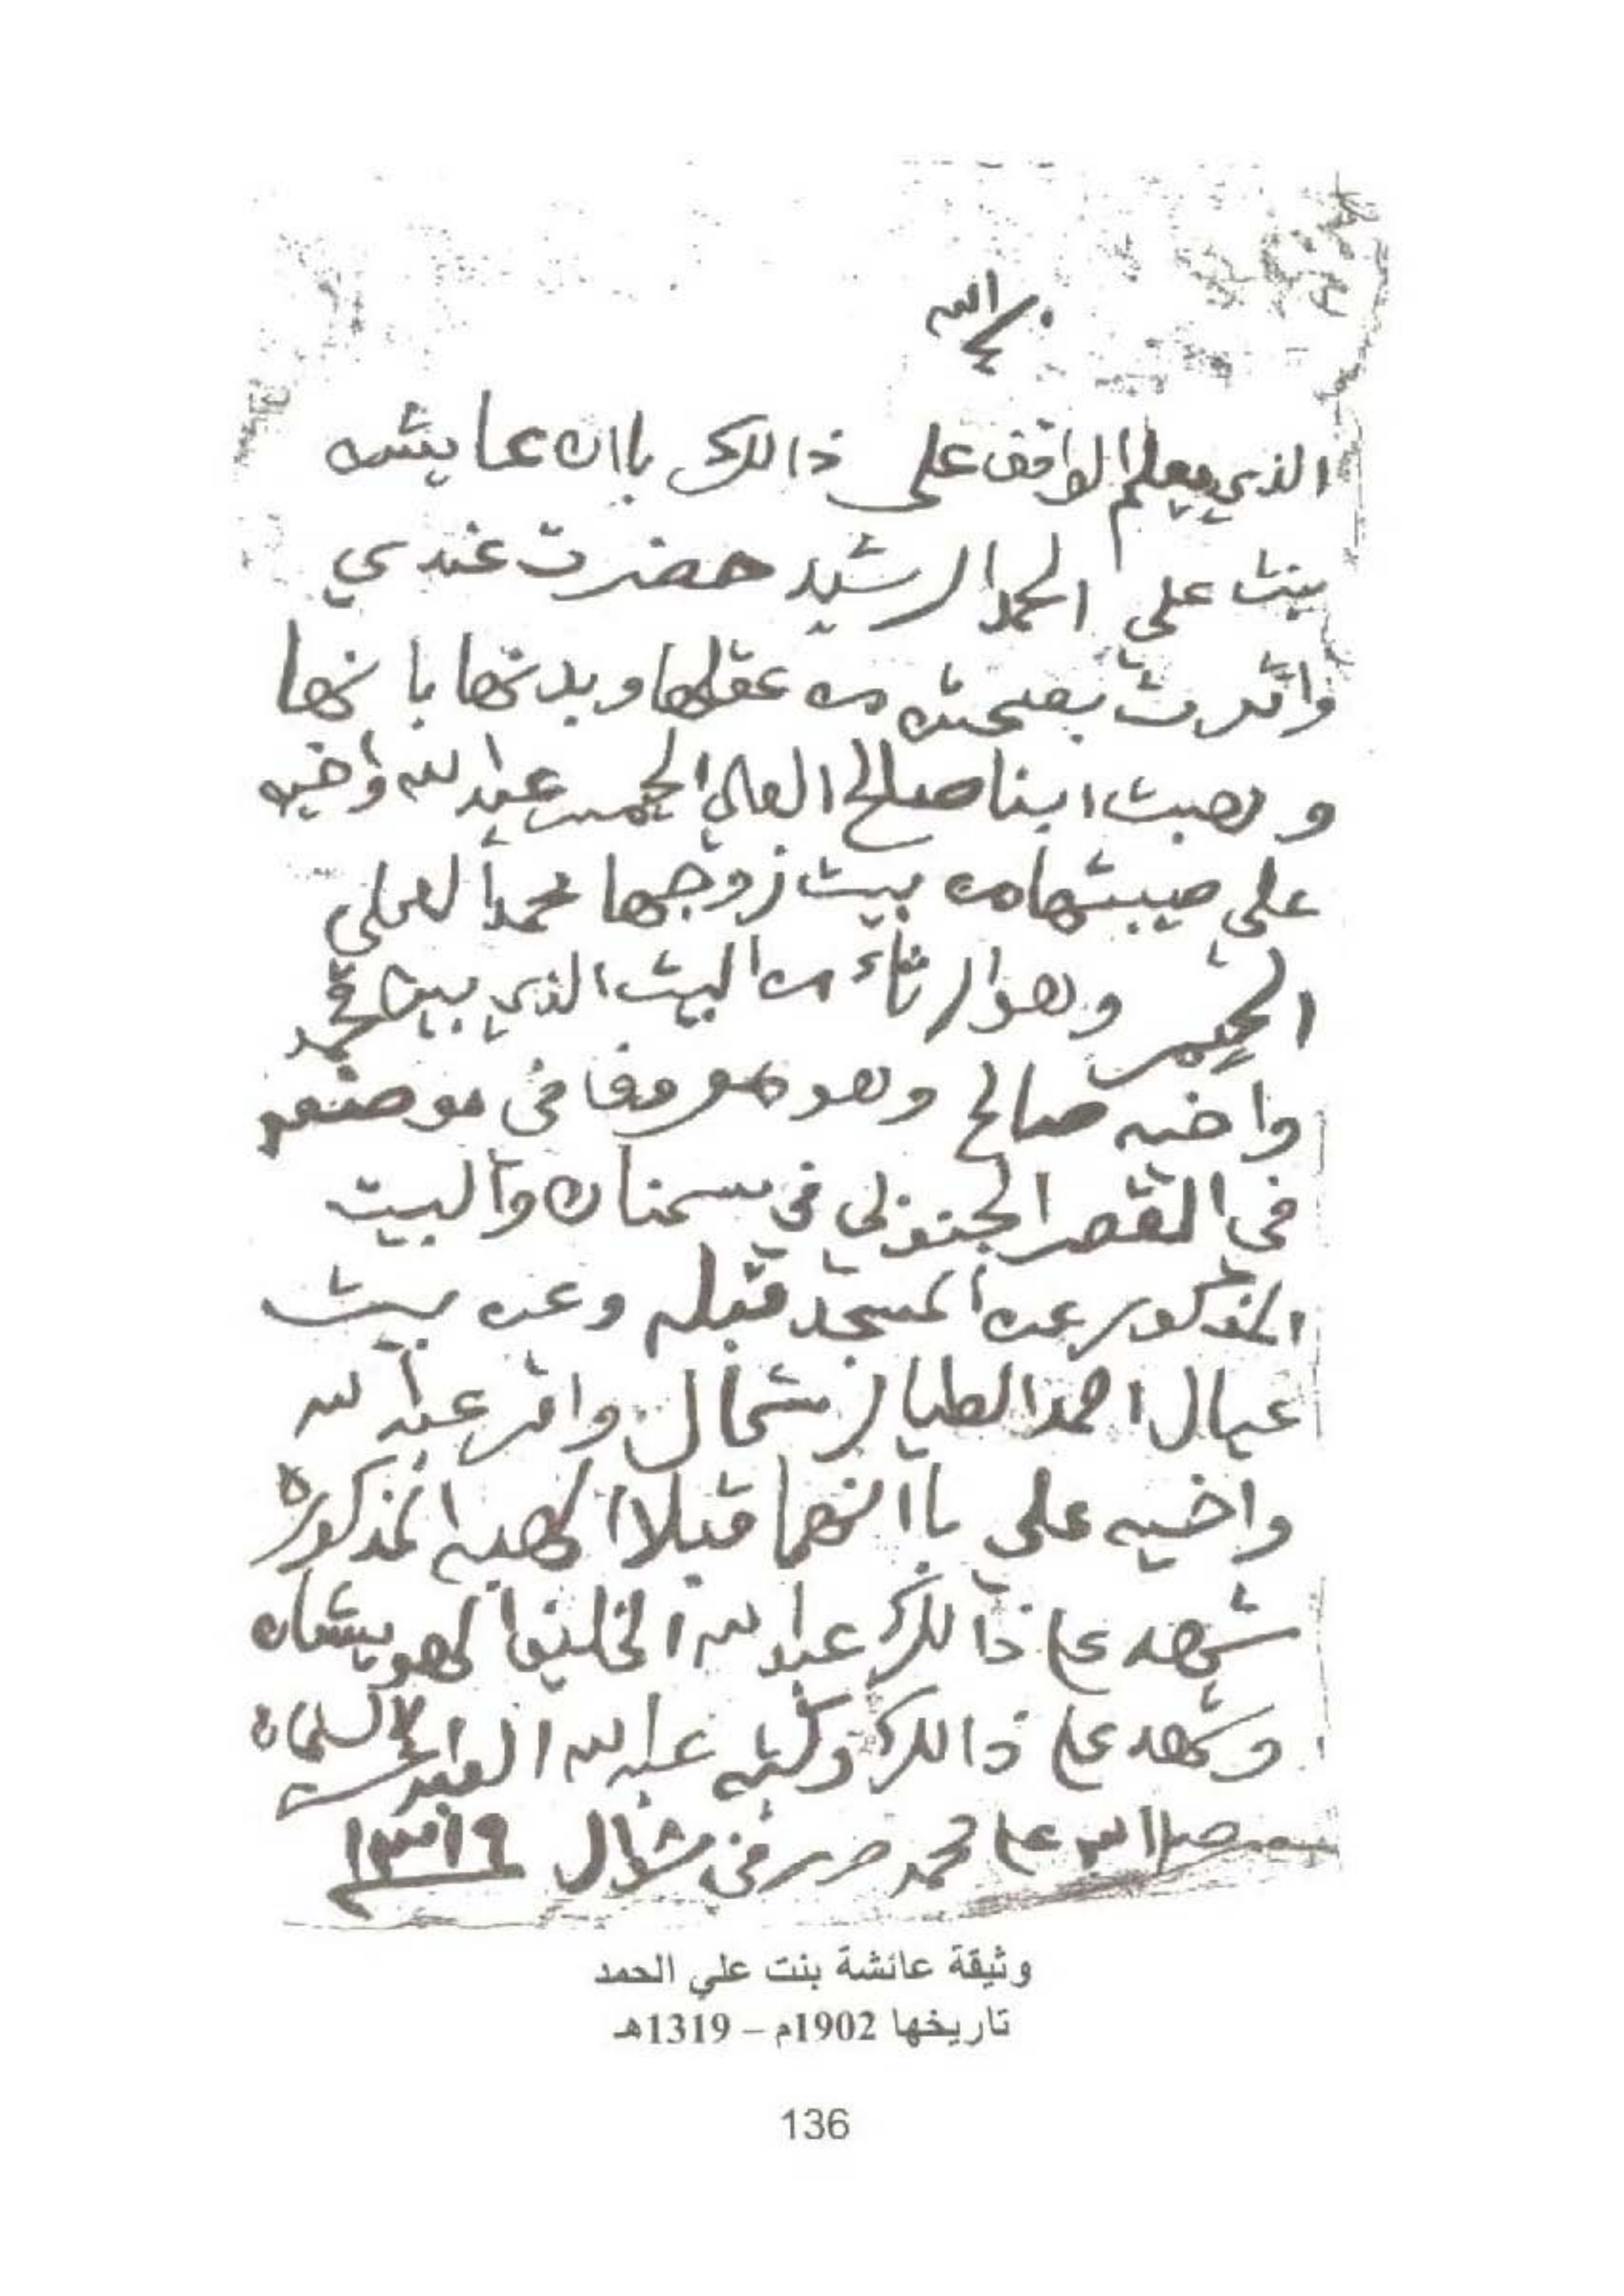 الله
الذي يعلم الواقف على ذالك باان عايشه
بنت علي الحمد الرشيد حضرت عندي
واقرت بصحته من عقلها وبدنها بانها
وهبت ابنا صالح العلي الحميّر عبد الله واخيه
علي صيبتها من بيت زوجها محمد العلي
الحميّر وهو ارثاء من البيت الذي بين محمد
واخيه صالح وهو معروفا في موضعه
في القصر الجنوبي في سمنان والبيت
المذكور عن المسجد قبله وعن بيت
عيال احمد الطيار شمال واقر عبد الله
واخيه علي باانهما قبلا الهبه المذكوره
شهد علي ذالك عبد الله الخليفا لهويشان
وشهد علي ذالك وكتبه عبد الله السلمان
صلا الله علي محمد حرر في شوال ١٣١٩
وثيقة عائشة بنت علي الحمد
تاريخها 1902م – 1319هـ
136